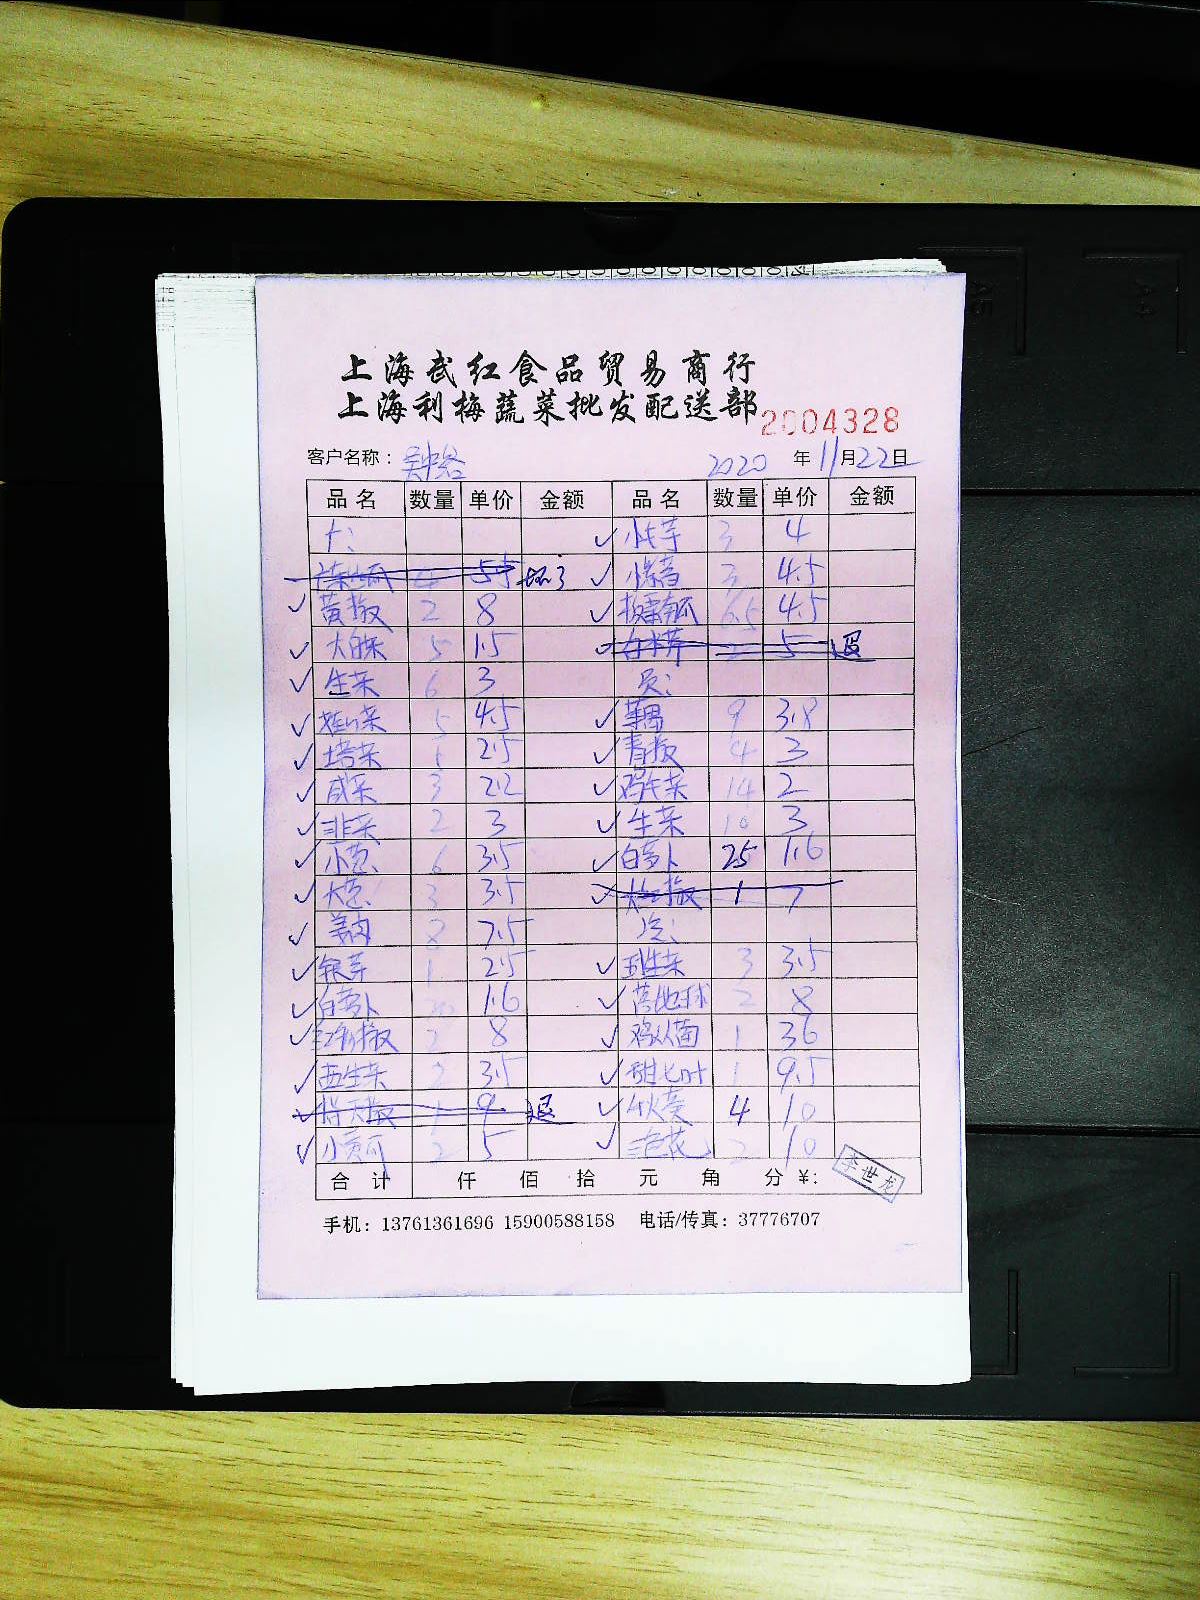 上海武红食品贸易商行
上海利梅蔬菜批发配送部
2004328
客户名称： 2020 年 11 月 22 日
品名 数量 单价 金额 品名 数量 单价 金额
3 4
5.5 坏了 3 4.5
黄椒 2 8 板栗南瓜 6.5 4.5
大白菜 5 1.5 5 退
生菜 6 3
5 4.5 藕 9 3.8
塔菜 1 2.5 青椒 4 3
咸菜 3 2.2 鸡毛菜 14 2
韭菜 2 3 生菜 10 3
小葱 6 3.5 白萝卜 25 1.6
大葱 3 3.5 1 7
姜肉 8 7.5
银芽 1 2.5 西生菜 3 3.5
白萝卜 1.6 2 8
2 8 鸡从菌 1 36
西生菜 2 3.5 1 9.5
1 9 退 4 10
小黄瓜 2 5 2 10
合计 仟 佰 拾 元 角 分 ¥:
李世龙
手机：13761361696 15900588158 电话/传真：37776707